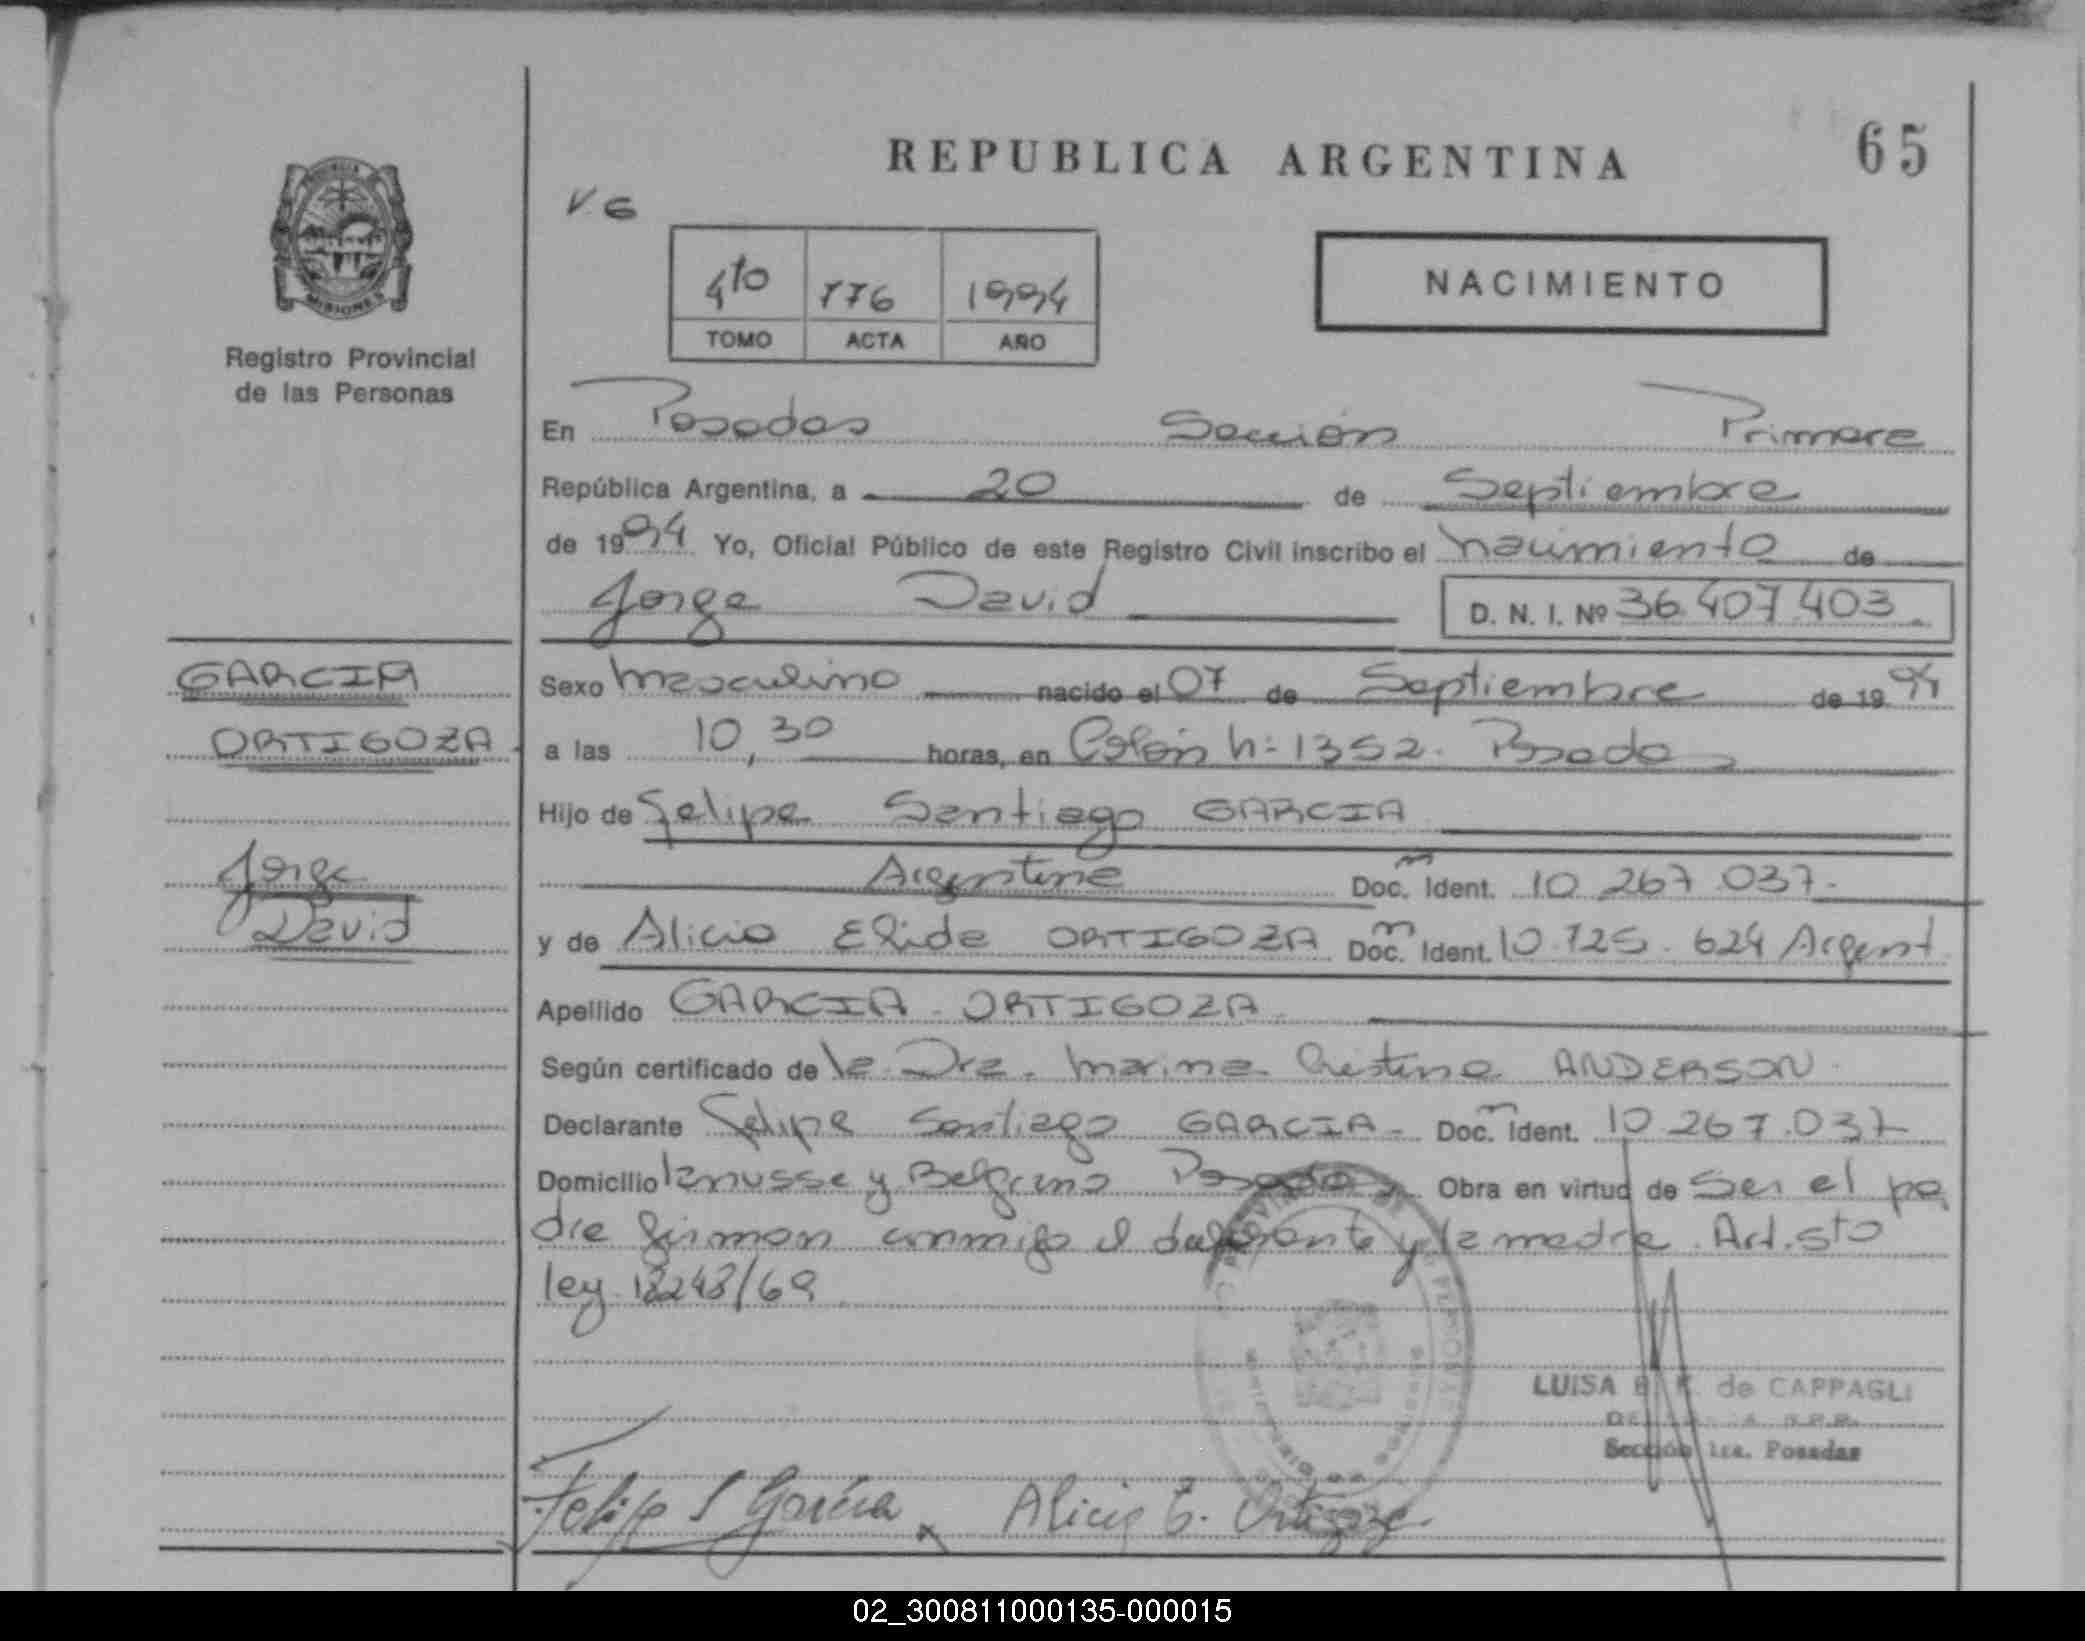 REPUBLICA ARGENTINA
65
V.G
4to 776 1994
TOMO ACTA AÑO
NACIMIENTO
MISIONES
Registro Provincial
de las Personas
En Posadas Sección Primera
República Argentina, a 20 de Septiembre
de 1994 Yo, Oficial Público de este Registro Civil inscribo el nacimiento de
Jorge David D. N. I. Nº 36.407.403
GARCIA
ORTIGOZA
Jorge
David
Sexo masculino nacido el 07 de Septiembre de 1994
a las 10,30 horas, en Colón Nº 1352. Posadas
Hijo de Felipe Santiago GARCIA
Argentina Doc. Ident. m 10.267.037.
y de Alicia Elida ORTIGOZA Doc. Ident. m 10.125.624 Argent.
Apellido GARCIA - ORTIGOZA
Según certificado de la Dra. Marina Cristina ANDERSON.
Declarante Felipe Santiago GARCIA - Doc. Ident. m 10.267.037
Domicilio Lanusse y Belgrano Posadas Obra en virtud de Ser el pa
dre firman conmigo el declarante y la madre. Art. 5to
ley 18248/69
LUISA de CAPPAGLI
Sección 1ra. Posadas
Felipe S Garcia x Alicia E. Ortigoza.
02_300811000135-000015